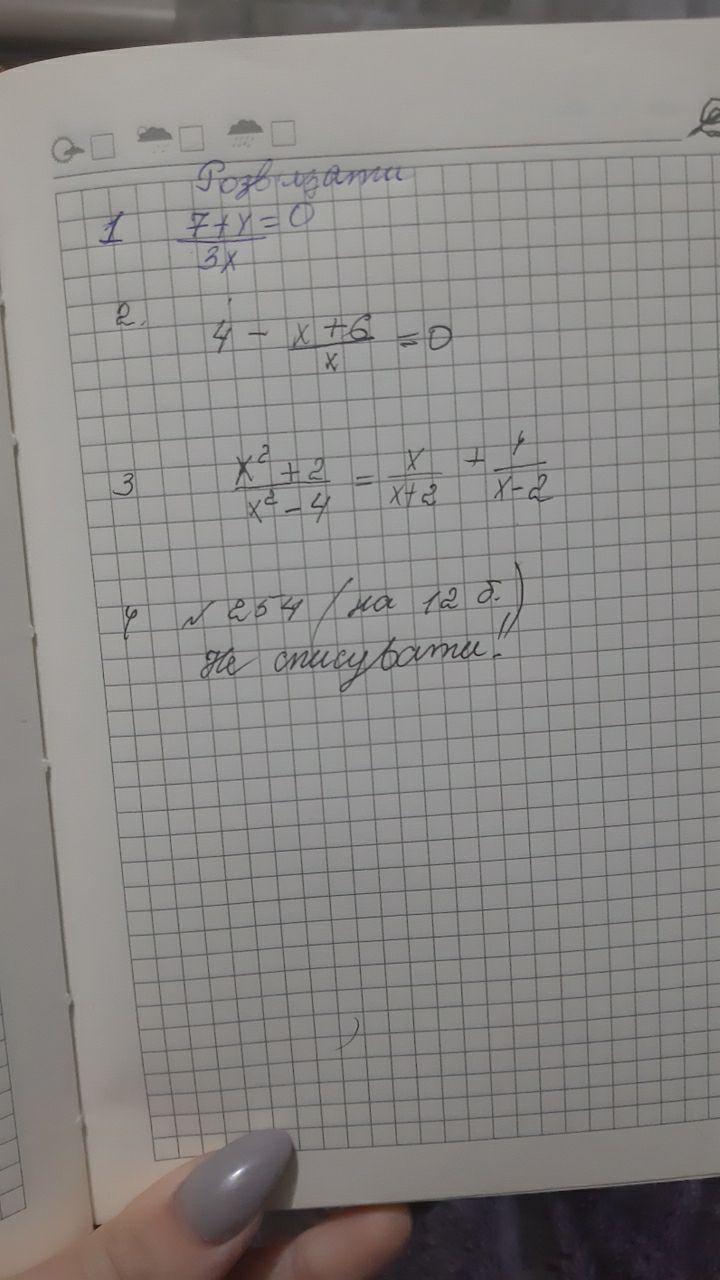 Розвязати
1 (7+x)/(3x) = 0
2. 4 - (x+6)/x = 0
3 (x²+2)/(x²-4) = x/(x+2) + 1/(x-2)
4 № 254 (на 12 б.)
Не списувати!!